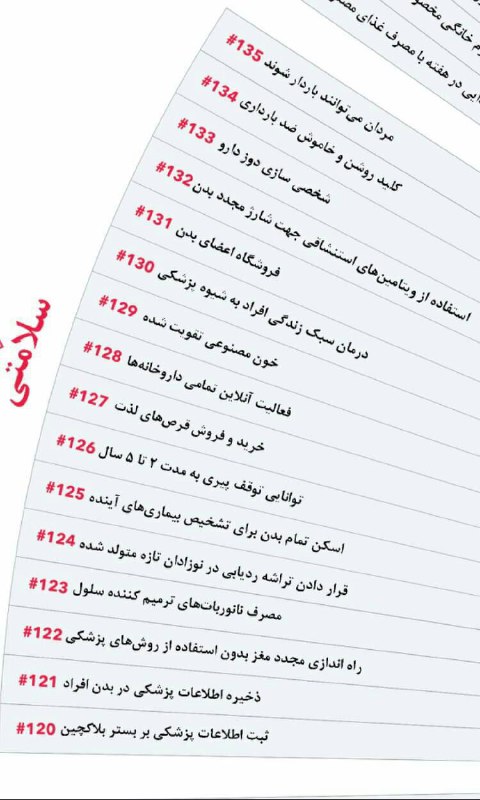 م خانگی مخصو
ایی در هفته با مصرف غذای مصنو
#135 مردان می‌توانند باردار شوند
#134 کلید روشن و خاموش ضد بارداری
#133 شخصی سازی دوز دارو
#132 استفاده از ویتامین‌های استنشاقی جهت شارژ مجدد بدن
#131 فروشگاه اعضای بدن
#130 درمان سبک زندگی افراد به شیوه پزشکی
#129 خون مصنوعی تقویت شده
#128 فعالیت آنلاین تمامی داروخانه‌ها
#127 خرید و فروش قرص‌های لذت
#126 توانایی توقف پیری به مدت ۲ تا ۵ سال
#125 اسکن تمام بدن برای تشخیص بیماری‌های آینده
#124 قرار دادن تراشه ردیابی در نوزادان تازه متولد شده
#123 مصرف نانوربات‌های ترمیم کننده سلول
#122 راه اندازی مجدد مغز بدون استفاده از روش‌های پزشکی
#121 ذخیره اطلاعات پزشکی در بدن افراد
#120 ثبت اطلاعات پزشکی بر بستر بلاکچین
سلامتی